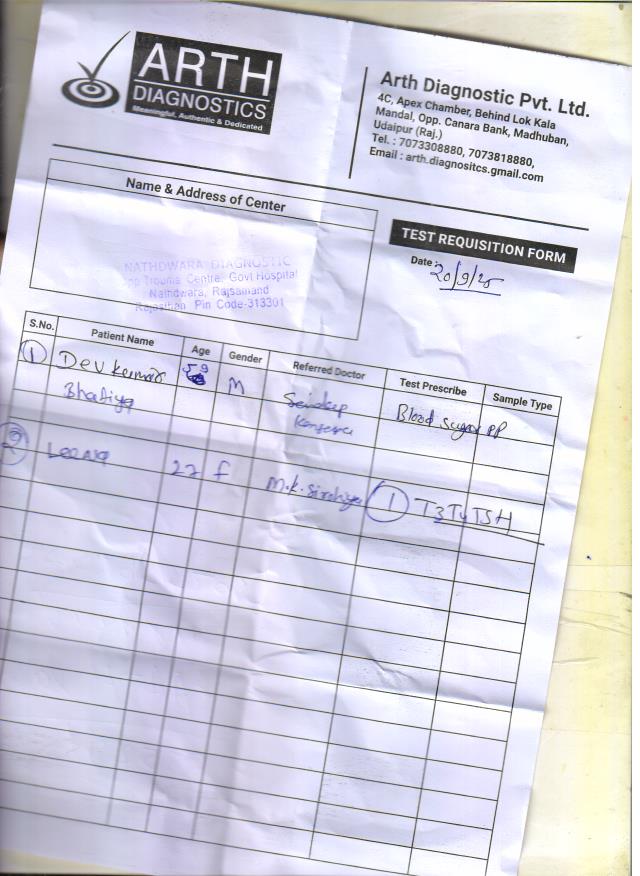 ARTH
DIAGNOSTICS
Meaningful, Authentic & Dedicated
Arth Diagnostic Pvt. Ltd.
4C, Apex Chamber, Behind Lok Kala
Mandal, Opp. Canara Bank, Madhuban,
Udaipur (Raj.)
Tel. : 7073308880, 7073818880,
Email : arth.diagnositcs.gmail.com
Name & Address of Center
NATHDWARA DIAGNOSTIC
Opp Trauma Centre, Govt Hospital
Nathdwara, Rajsamand
Rajasthan Pin Code-313301
TEST REQUISITION FORM
Date : 20/9/25
S.No. Patient Name Age Gender Referred Doctor Test Prescribe Sample Type
1 Dev kumar 59 M Blood sugar PP
Bhatiya
2 Leena 27 f M.K. 1 T3T4TSH